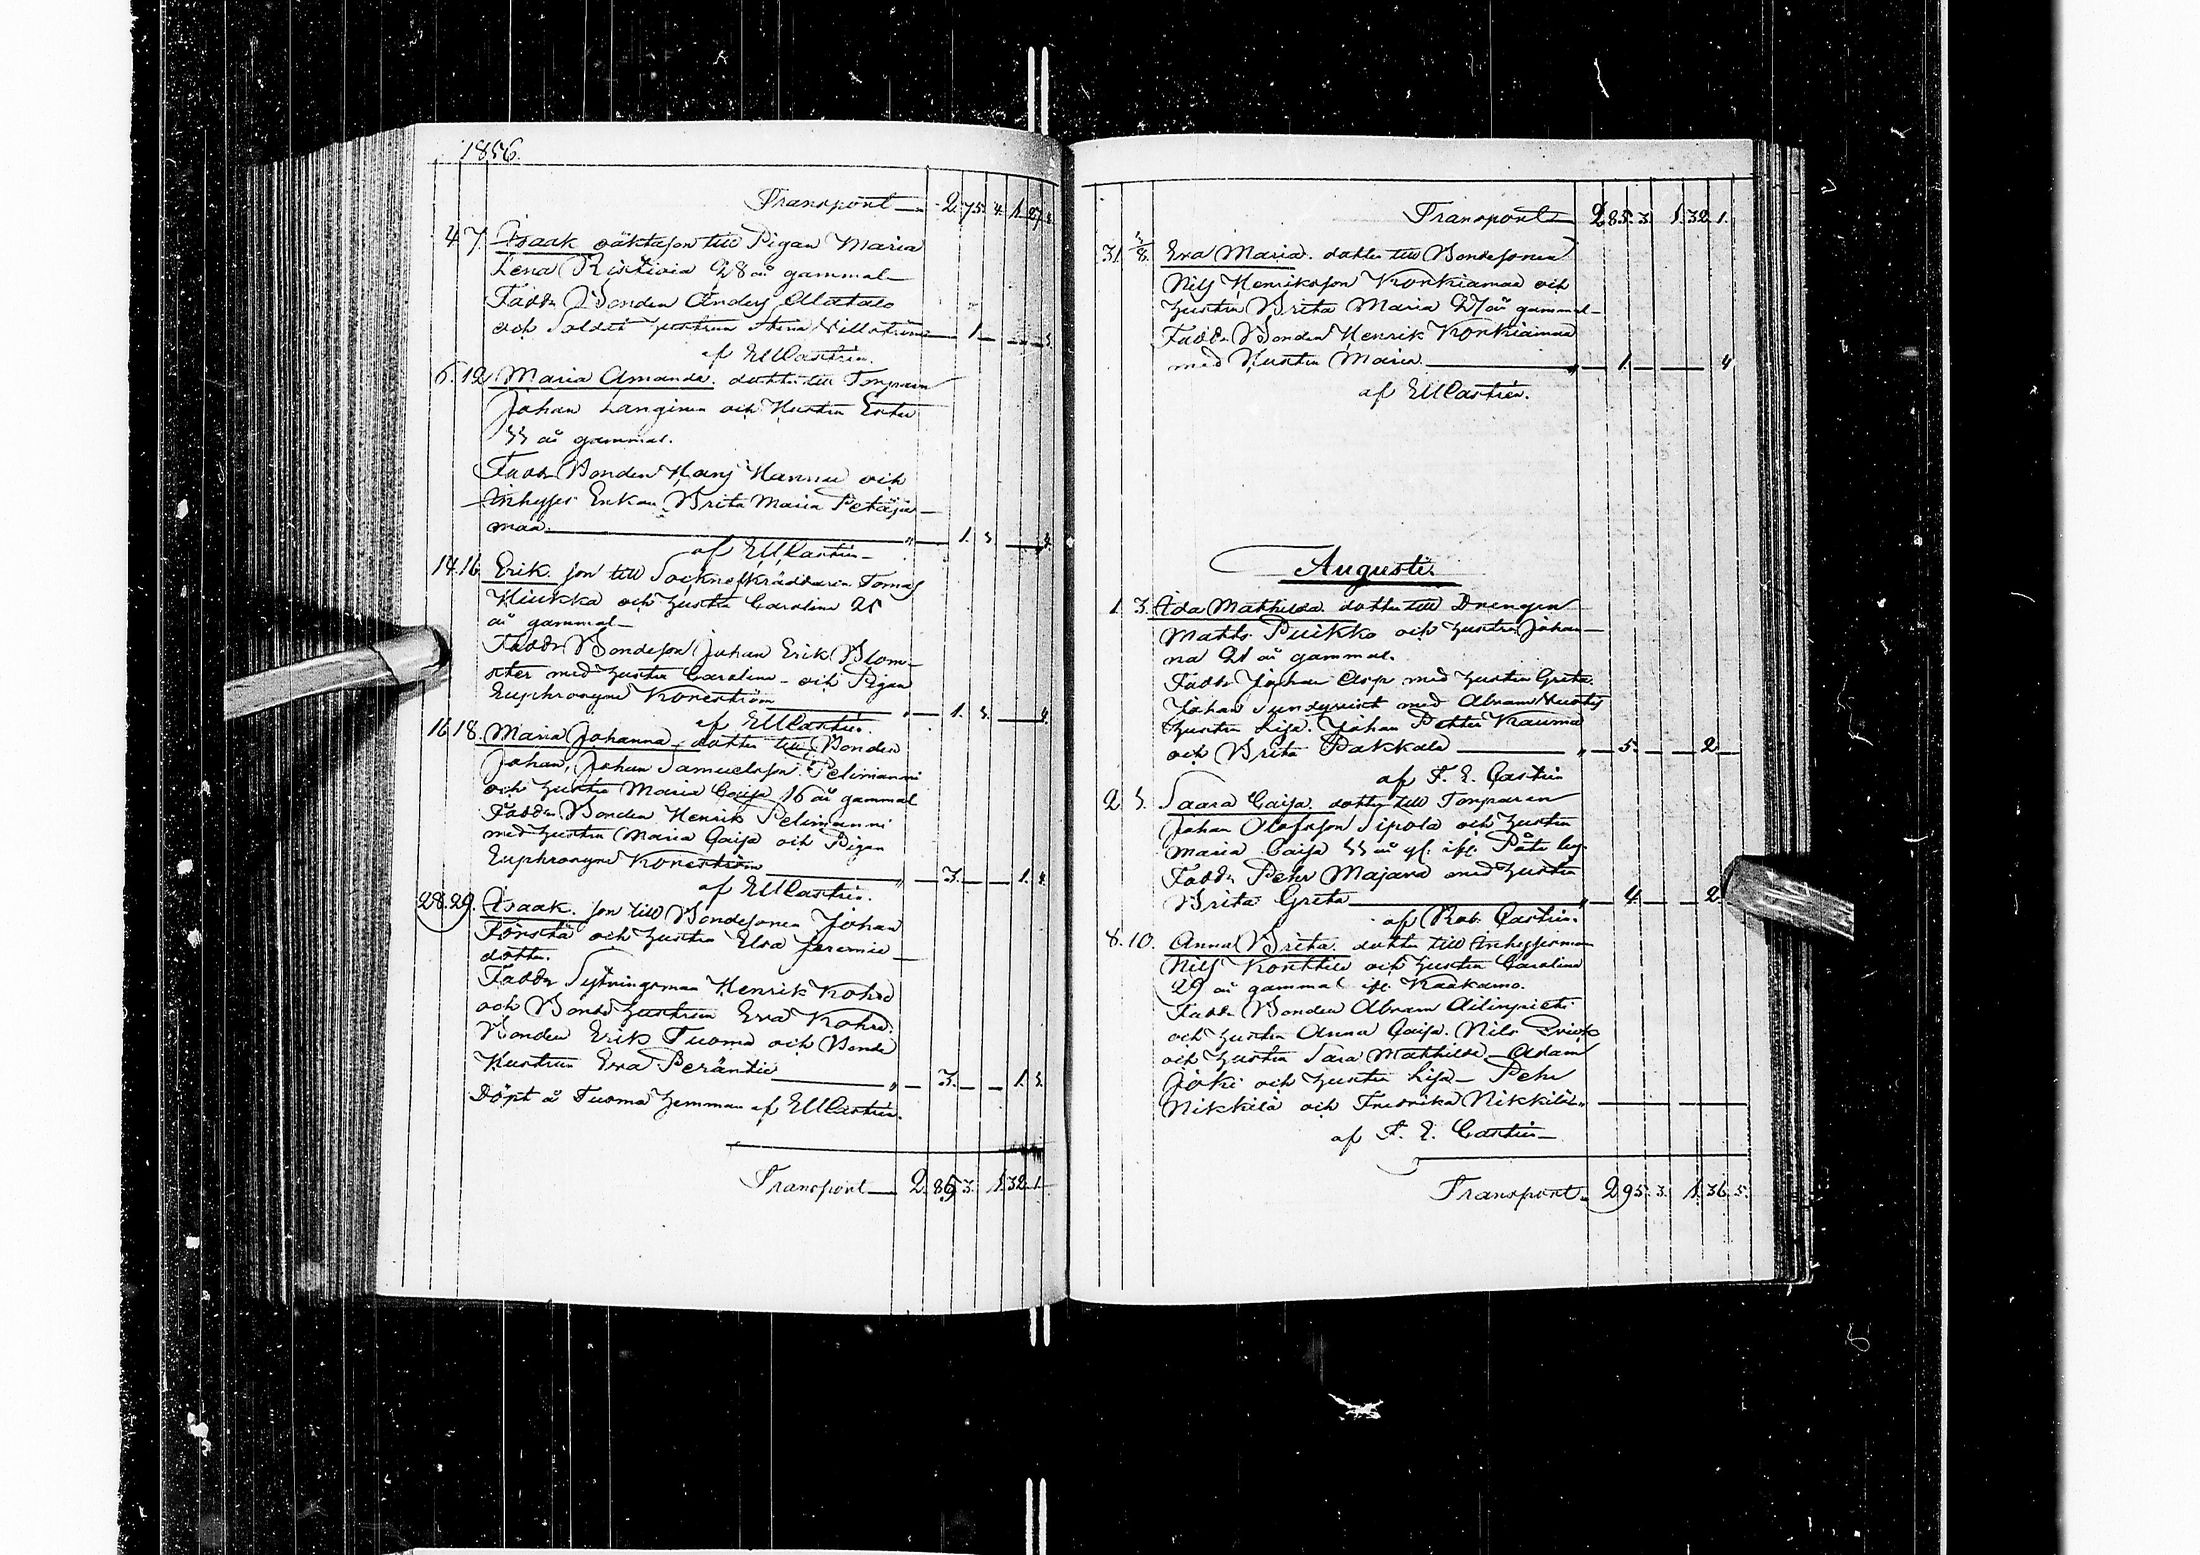 1856.
Transport — 2. 75. 4. 1. 27.
4. 7. Isaak oäktason till Pigan Maria
Lena Ristivia 28 år gammal
Fadd. Bonden Anders Alatalo
och Soldat hustrun Stina 1.
af EMCastrén.
6. 12. Maria Amanda. dotter till Torparen
Johan Langinen och Hustru Ester
år gammal.
Fadd. Bonden Hans Hannu och
Inhyses Enkan Brita Maria Petäjä
maa. 1.
af EMCastrén
14. 16. Erik son till Socknskräddaren Tomas
Kiukka och hustru Carolina 25
år gammal
Fadd. Bondeson Johan Erik Blom-
ster med hustru Carolina - och Pigan
Euphrosyne Korström 1.
af EMCastrén.
16. 18. Maria Johanna, dotter till Bonden
Johan, Johan Samuelsson Pelimanni
och hustru Maria Caisa 16 år gammal
Fadd. Bonden Henrik Pelimanni
med hustru Maria Caisa och Pigan
Euphrosyne 3. 1.
af EMCastrén.
28. 29. Isaak. son till Bondesonen Johan
och hustru Elsa Jeremie
dotter.
Fadd. Sytningsman Henrik
och Bonde hustrun Eva
Bonden Erik Tuoma och Bonde
Hustrun Eva Peräntie 3. 1. 3.
Döpt å Tuoma hemman af EMCastrén.
Transport — 2. 85. 3. 1. 32. 1.
Transport 2 85. 3. 1. 32. 1.
31. 3/8. Eva Maria. dotter till Bondesonen
Nils Henriksson Konkiamaa och
hustru Brita Maria 27 år gammal
Fadd. Bonden Henrik Konkiamaa
med Hustru Maria. 1. 4
af EMCastrén.
Augusti.
1. 3. Ida Mathilda. dotter till Drengen
Matts Puikko och hustru Johan-
na 21 år gammal.
Fadd. Johan Asp med hustru Greta.
Johan Sundqvist med Abram
hustru Lisa. Johan Petter Rauma
och Brita Pakkala 5. 2
af F. E. Castrén
2 Saara Caisa. dotter till Torparen
Johan Olofsson Sipola och hustru
Maria Caisa år gl. ifr. by.
Fadd. Pehr Majava med hustru
Brita Greta 4. 2
af Rob. Castrén.
8. 10. Anna Brita. dotter till Inhysesman
Nils Konttila och hustru Carolina
29 år gammal ifr. Kaakamo.
Fadd. Bonden Abram Ailinpieti
och hustru Anna Caisa. Nils
och hustru Sara Mathilda - Adam
Joki och hustru Lisa - Pehr
Nikkilä och Fredrika Nikkilä
af F. E. Castrén
Transport 295. 3. 1. 36. 5.